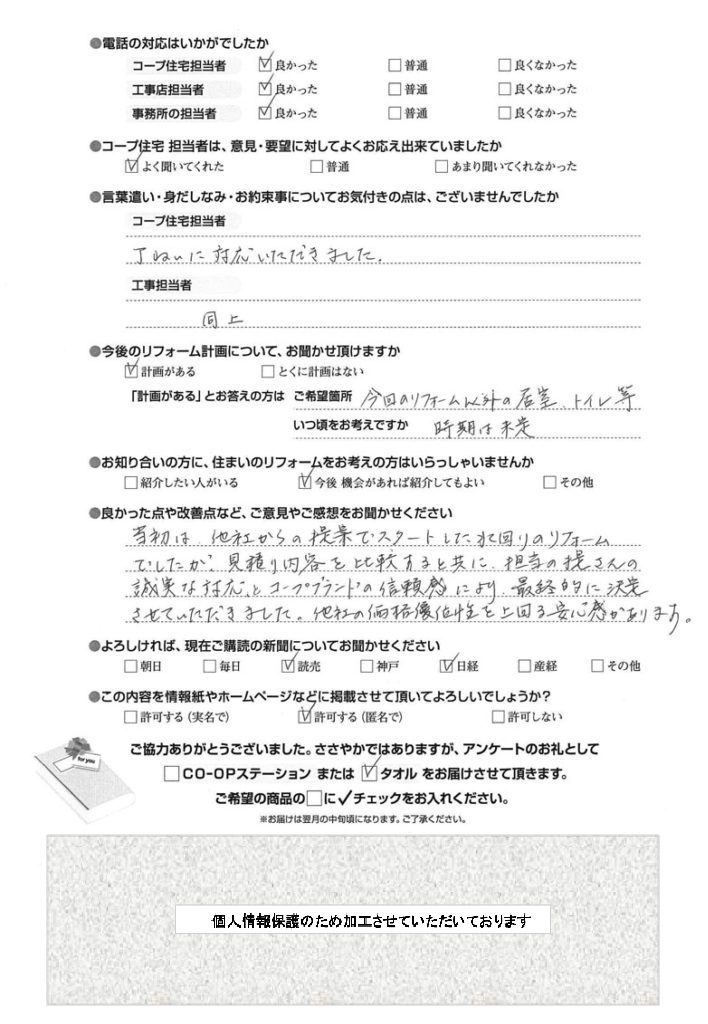 ●電話の対応はいかがでしたか
コープ住宅担当者 ☑良かった □普通 □良くなかった
工事店担当者 ☑良かった □普通 □良くなかった
事務所の担当者 ☑良かった □普通 □良くなかった
●コープ住宅 担当者は、意見・要望に対してよくお応え出来ていましたか
☑よく聞いてくれた □普通 □あまり聞いてくれなかった
●言葉遣い・身だしなみ・お約束事についてお気付きの点は、ございませんでしたか
コープ住宅担当者
丁ねいに対応いただきました。
工事担当者
同上
●今後のリフォーム計画について、お聞かせ頂けますか
☑計画がある □とくに計画はない
「計画がある」とお答えの方は ご希望箇所 今回のリフォーム以外の居室、トイレ等
いつ頃をお考えですか 時期は未定
●お知り合いの方に、住まいのリフォームをお考えの方はいらっしゃいませんか
□紹介したい人がいる ☑今後 機会があれば紹介してもよい □その他
●良かった点や改善点など、ご意見やご感想をお聞かせください
当初は、他社からの提案でスタートした水回りのリフォーム
でしたが、見積り内容を比較すると共に、担当の堤さんの
誠実な対応、とコープブランドの信頼感により、最終的に決定
させていただきました。他社の価格優位性を上回る安心感があります。
●よろしければ、現在ご購読の新聞についてお聞かせください
□朝日 □毎日 ☑読売 □神戸 ☑日経 □産経 □その他
●この内容を情報紙やホームページなどに掲載させて頂いてよろしいでしょうか?
□許可する(実名で) ☑許可する(匿名で) □許可しない
for you
ご協力ありがとうございました。ささやかではありますが、アンケートのお礼として
□CO-OPステーション または ☑タオル をお届けさせて頂きます。
ご希望の商品の□に✓チェックをお入れください。
※お届けは翌月の中旬頃になります。ご了承ください。
個人情報保護のため加工させていただいております